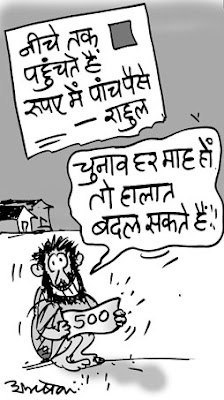 नीचे तक
पहुंचते हैं
रूपए में पांच पैसे
— राहुल
चुनाव हर माह हों
तो हालात
बदल सकते हैं..
500